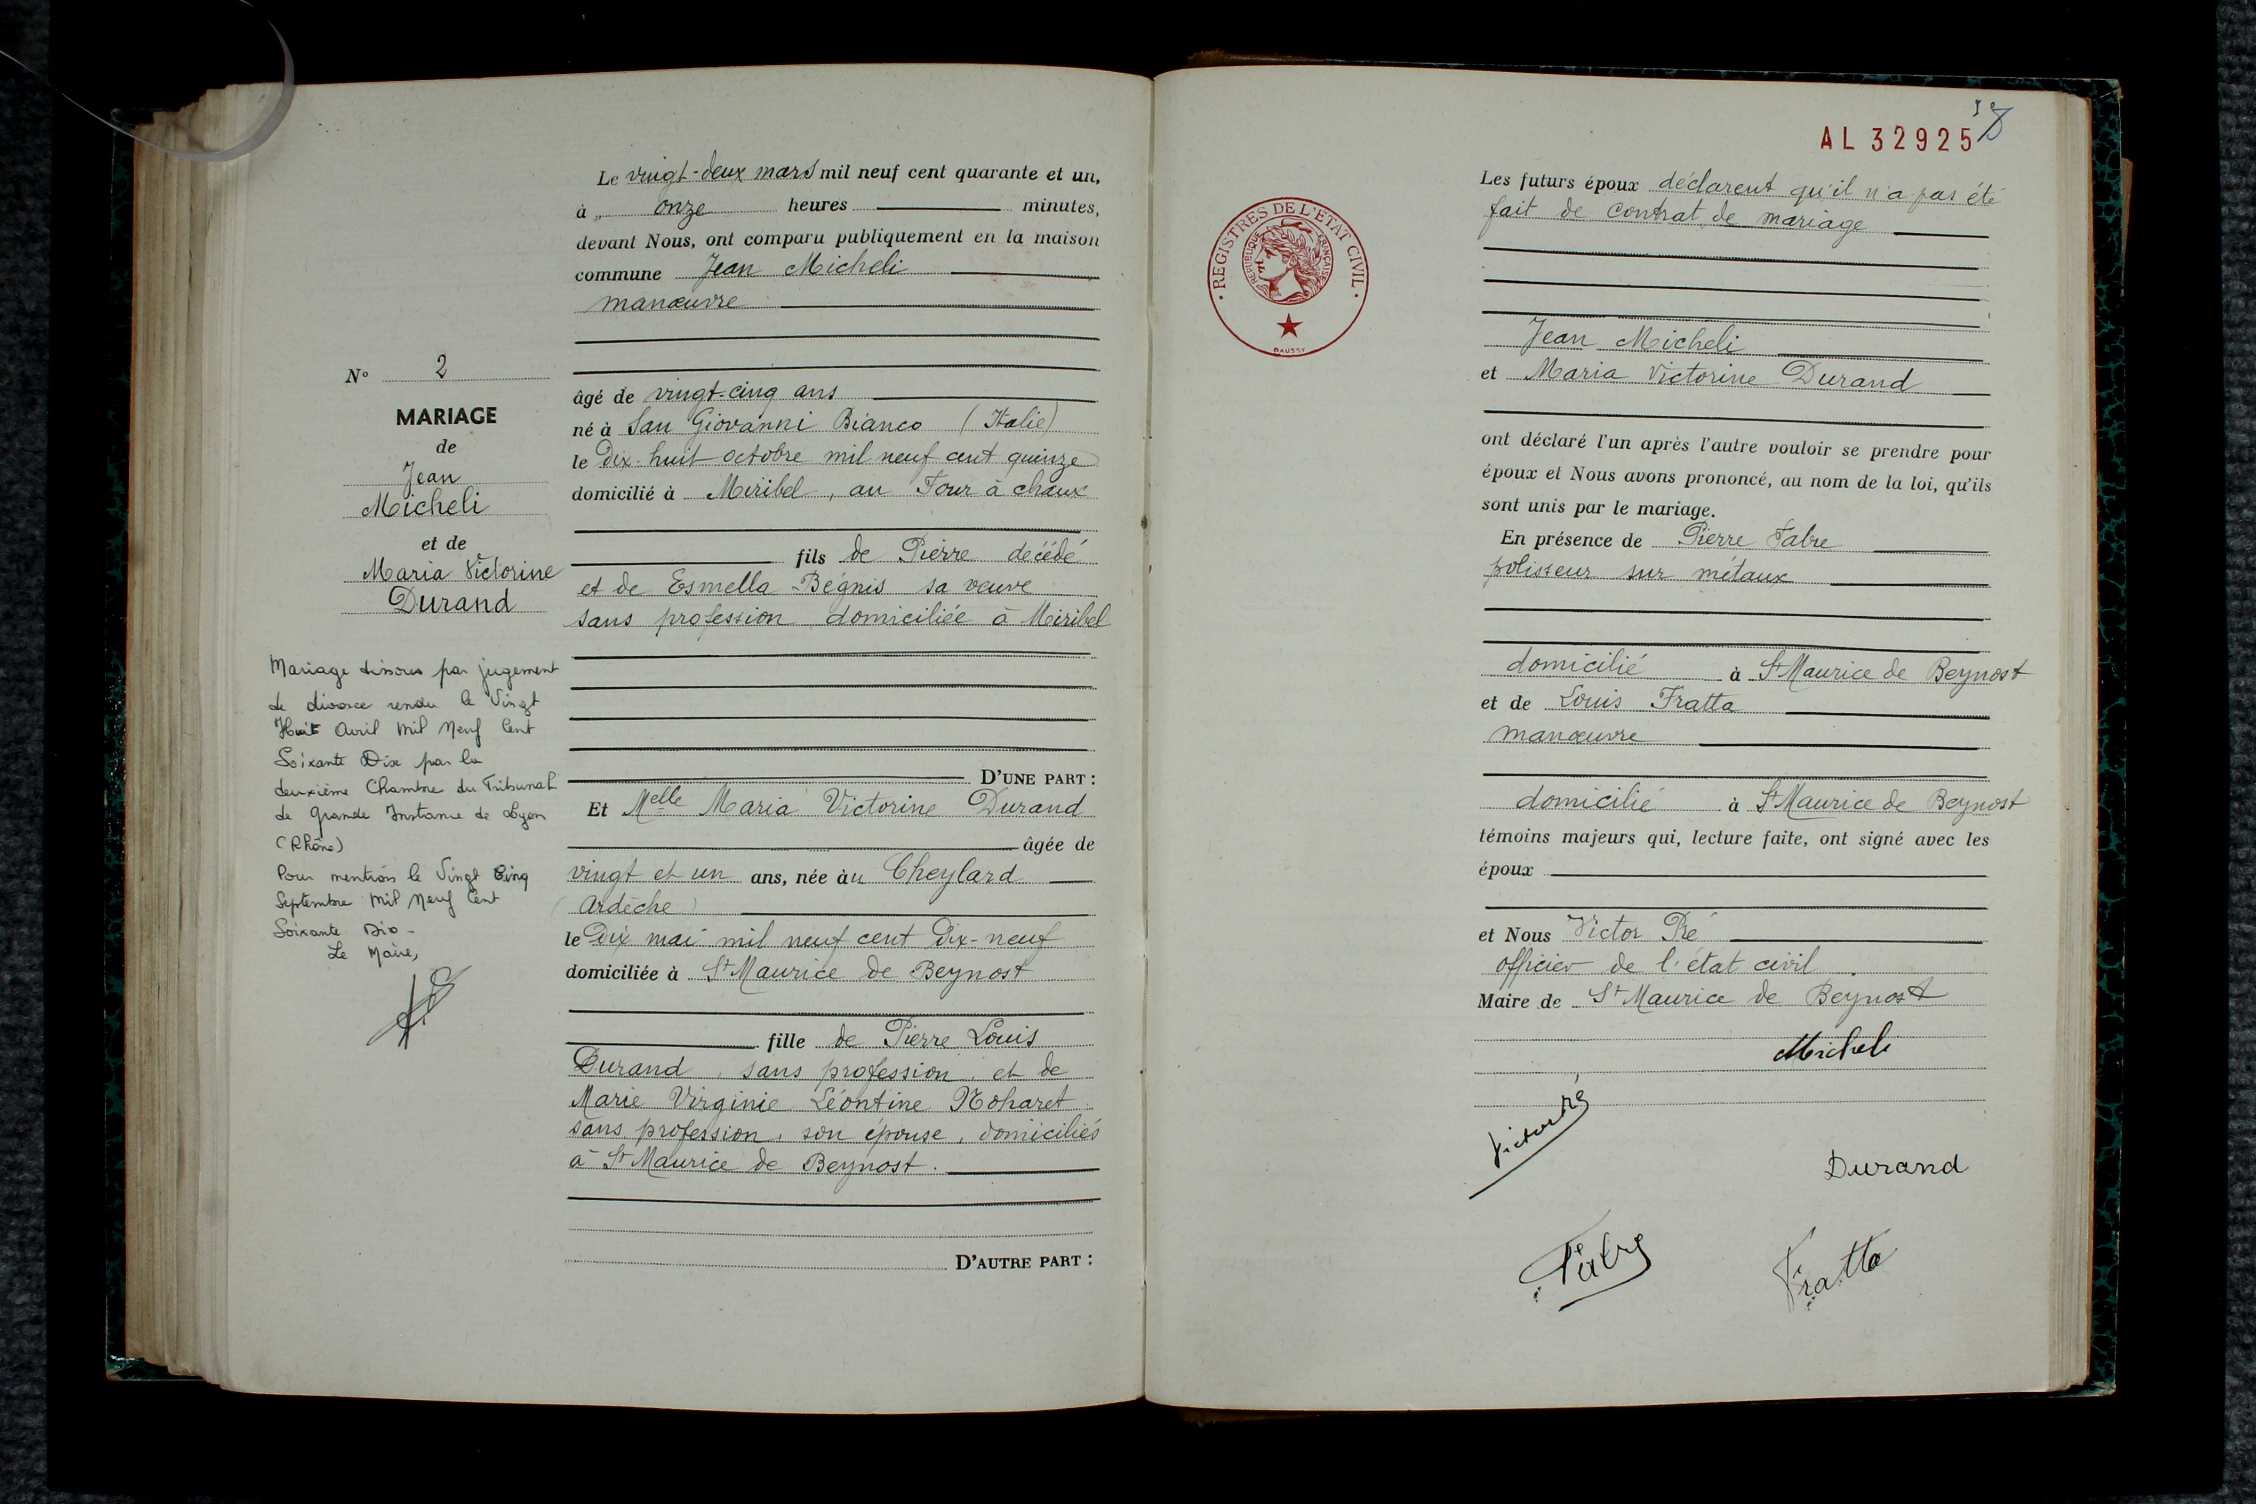 N° 2
MARIAGE
de
Jean
Micheli
et de
Maria Victorine
Durand
Mariage dissous par jugement
de divorce rendu le Vingt
Huit Avril Mil Neuf Cent
Soixante Dix par la
deuxième Chambre du Tribunal
de Grande Instance de Lyon
(Rhône)
Pour mention le Vingt Cinq
Septembre Mil Neuf Cent
Soixante Dix -
Le Maire,
Le vingt-deux mars mil neuf cent quarante et un,
à onze heures minutes,
devant Nous, ont comparu publiquement en la maison
commune Jean Micheli
manœuvre
âgé de vingt-cinq ans
né à San Giovanni Bianco (Italie)
le Dix-huit octobre mil neuf cent quinze
domicilié à Miribel, au Four à chaux
fils de Pierre décédé
et de Esmella Bégnis sa veuve
sans profession domiciliée à Miribel
D'UNE PART :
Et Melle Maria Victorine Durand
âgée de
vingt et un ans, née àu Cheylard
(Ardèche)
le Dix mai mil neuf cent Dix-neuf
domiciliée à St Maurice de Beynost
fille de Pierre Louis
Durand, sans profession, et de
Marie Virginie Léontine Noharet
sans profession, son épouse, domiciliés
à St Maurice de Beynost.
D'AUTRE PART :
REGISTRES DE L'ÉTAT CIVIL
RÉPUBLIQUE FRANÇAISE
DAUSSY
AL 32925
Les futurs époux déclarent qu'il n'a pas été
fait de contrat de mariage
Jean Micheli
et Maria Victorine Durand
ont déclaré l'un après l'autre vouloir se prendre pour
époux et Nous avons prononcé, au nom de la loi, qu'ils
sont unis par le mariage.
En présence de Pierre Fabre
polisseur sur métaux
domicilié à St Maurice de Beynost
et de Louis Fratta
manœuvre
domicilié à St Maurice de Beynost
témoins majeurs qui, lecture faite, ont signé avec les
époux
et Nous Victor Pré
officier de l'état civil
Maire de St Maurice de Beynost
Micheli
Victor Pré
Durand
Fabre
Fratta